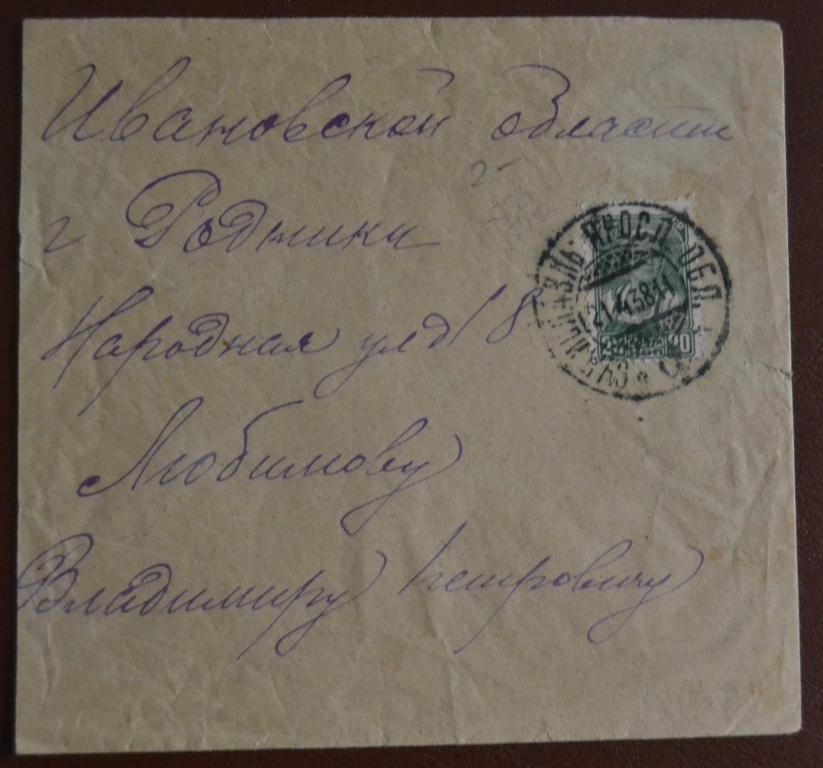 Ивановской области
2-
г Родники
Народная ул д 18
Любимову
Владимиру Петровичу
ЯРОСЛ. ОБЛ.
21.4.38.11
20